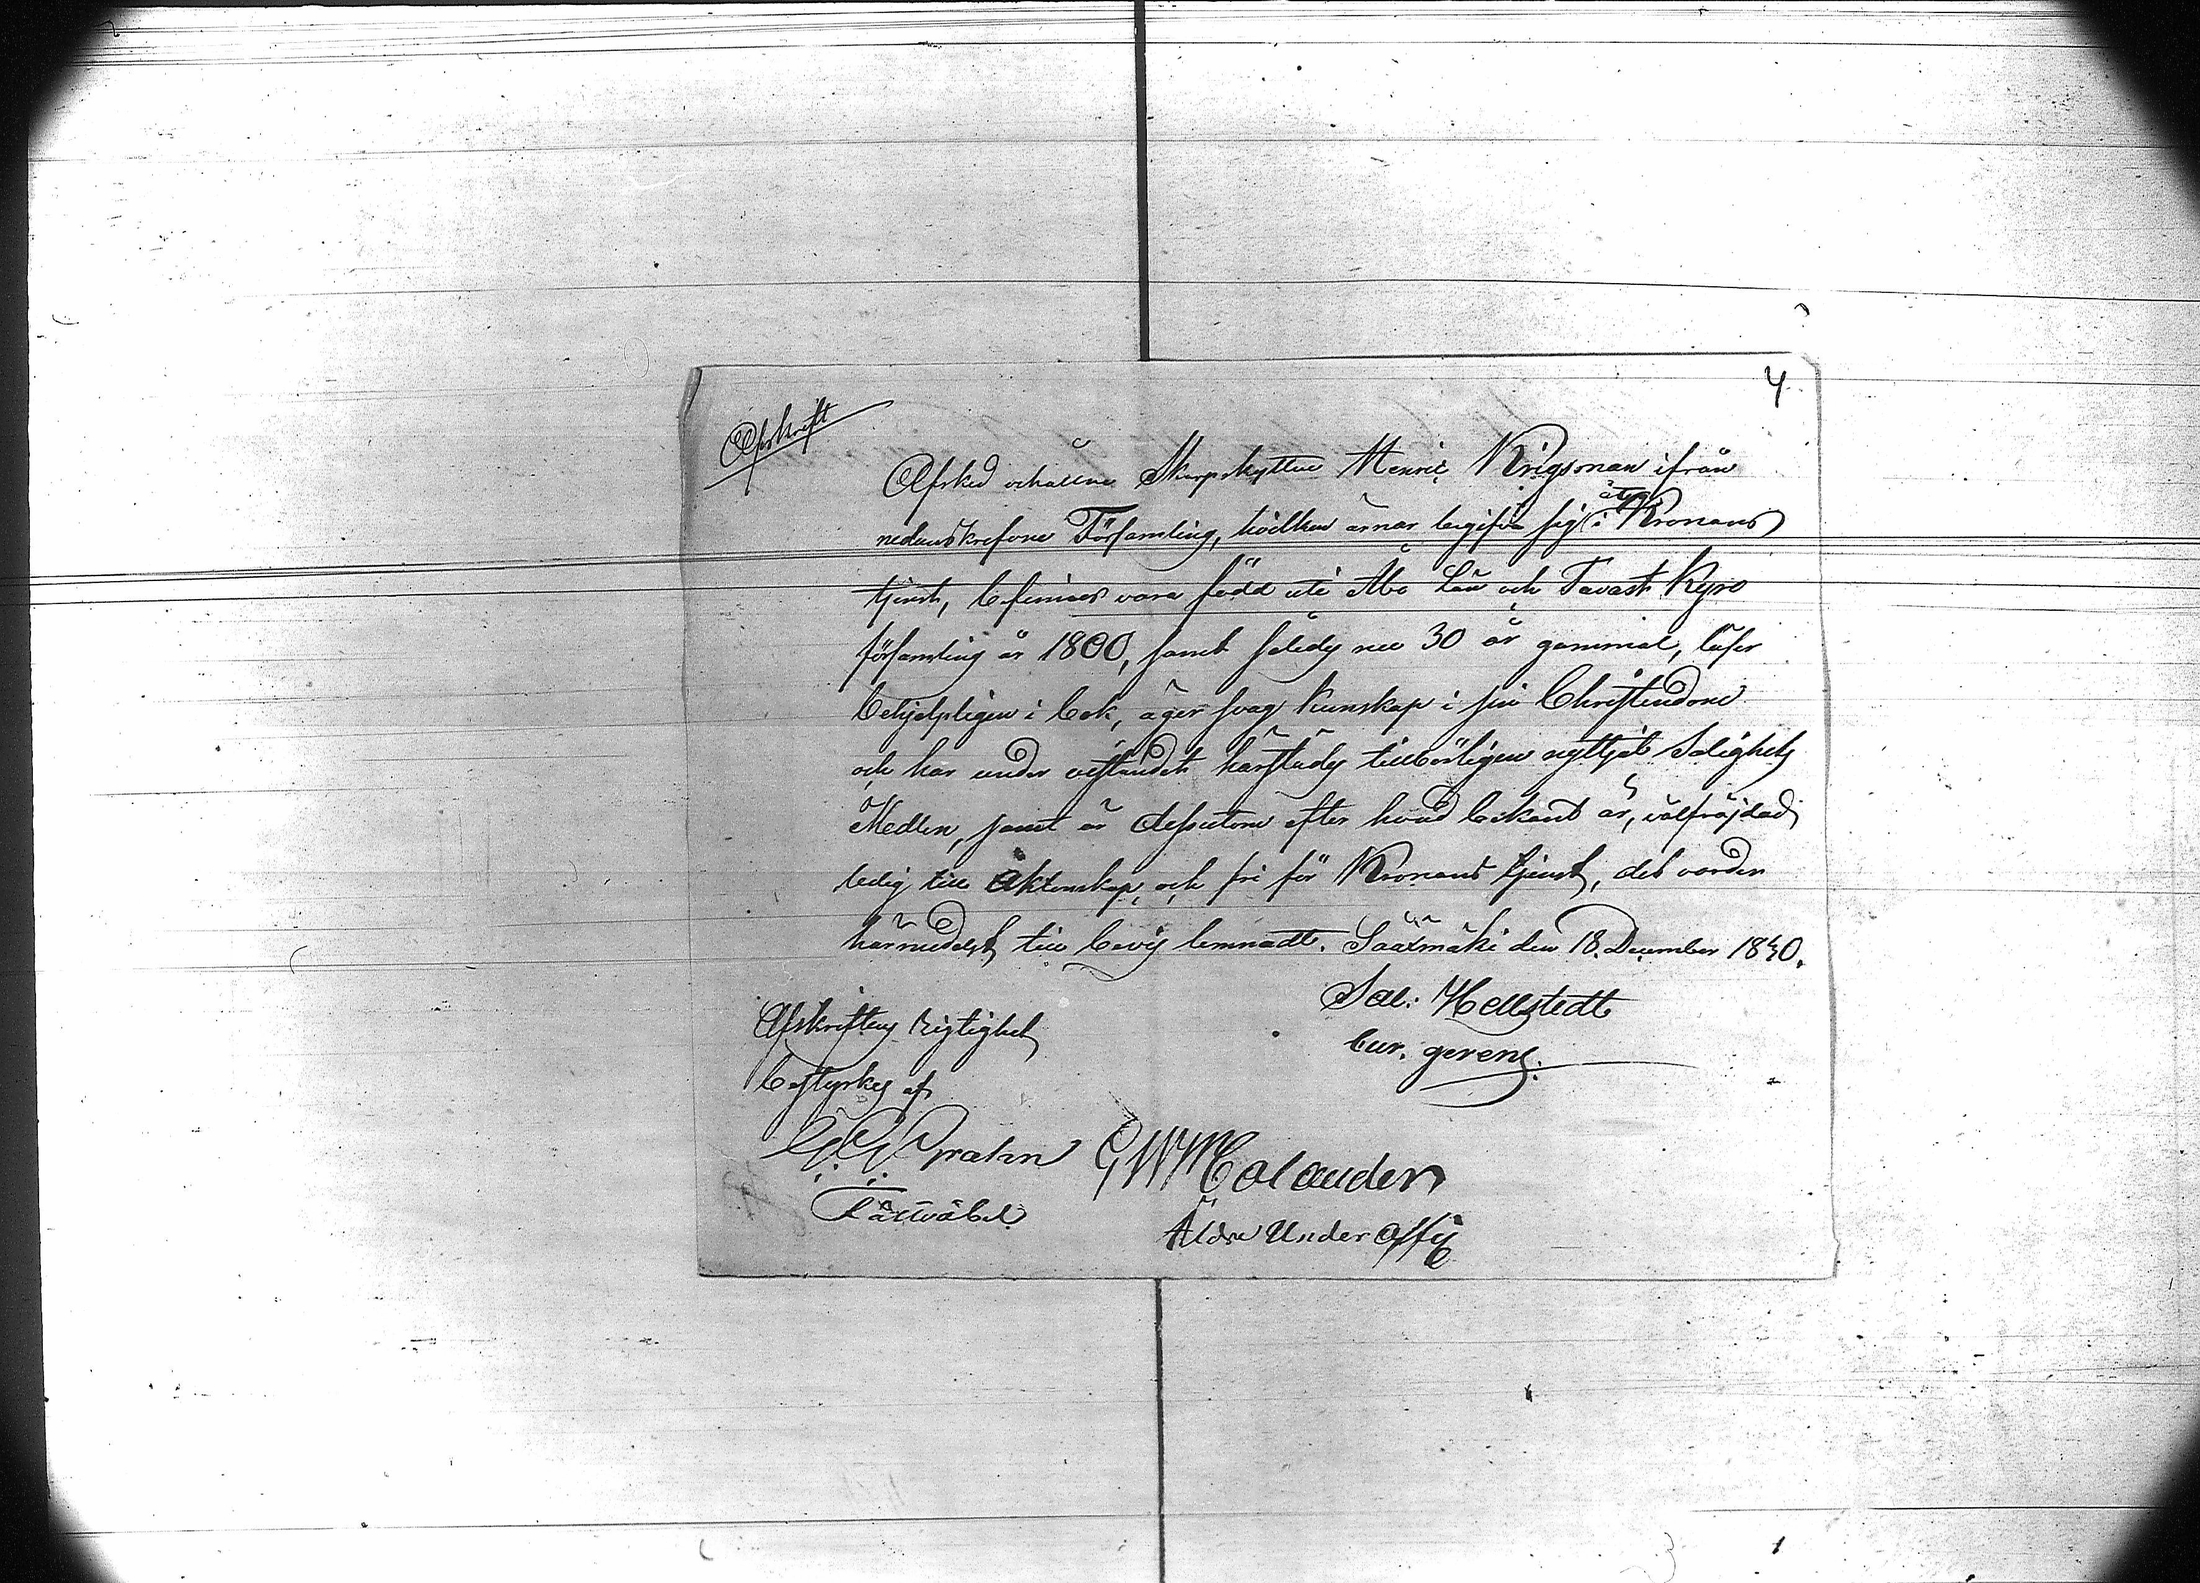 4
Afskrift
Afsked erhållne Skarpskyttne Henric Krigsman ifrån
nedanskrefvne Församling, hvilken ärnar begifva sig åter i Kronans
tjenst, befinnes vara född uti Åbo Län och Tavast Kyro
församling år 1800, samt således nu 30 år gammal, läser
behjelpligen i bok, äger svag kunskap i sin Christendom
och har under vistandet härstädes tillbörligen nyttjat Salighets
Medlen, samt är dessutom efter hvad bekant är, välfräjdad
ledig till Äktenskap, och fri för Kronans tjenst, det varder
härmedelst till bevis lemnadt. Sääxmäki den 18. December 1830.
Sal: Hellstedt
Cur. gerens.
Afskriftens rigtighet
bestyrkes af
G. G. Grahn
Fältväbel
GW Molander
Äldre Under Offic